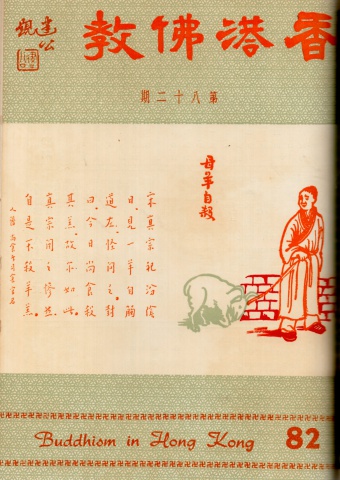 香港佛教
第八十二期
母羊自殺
宋真宗祀汾陰
日，見一羊自觸
道左，怪問之，對
曰，今日尚食殺
其羔，故 如此。
真宗聞之慘然，
自是不殺羊羔。
Buddhism in Hong Kong
82